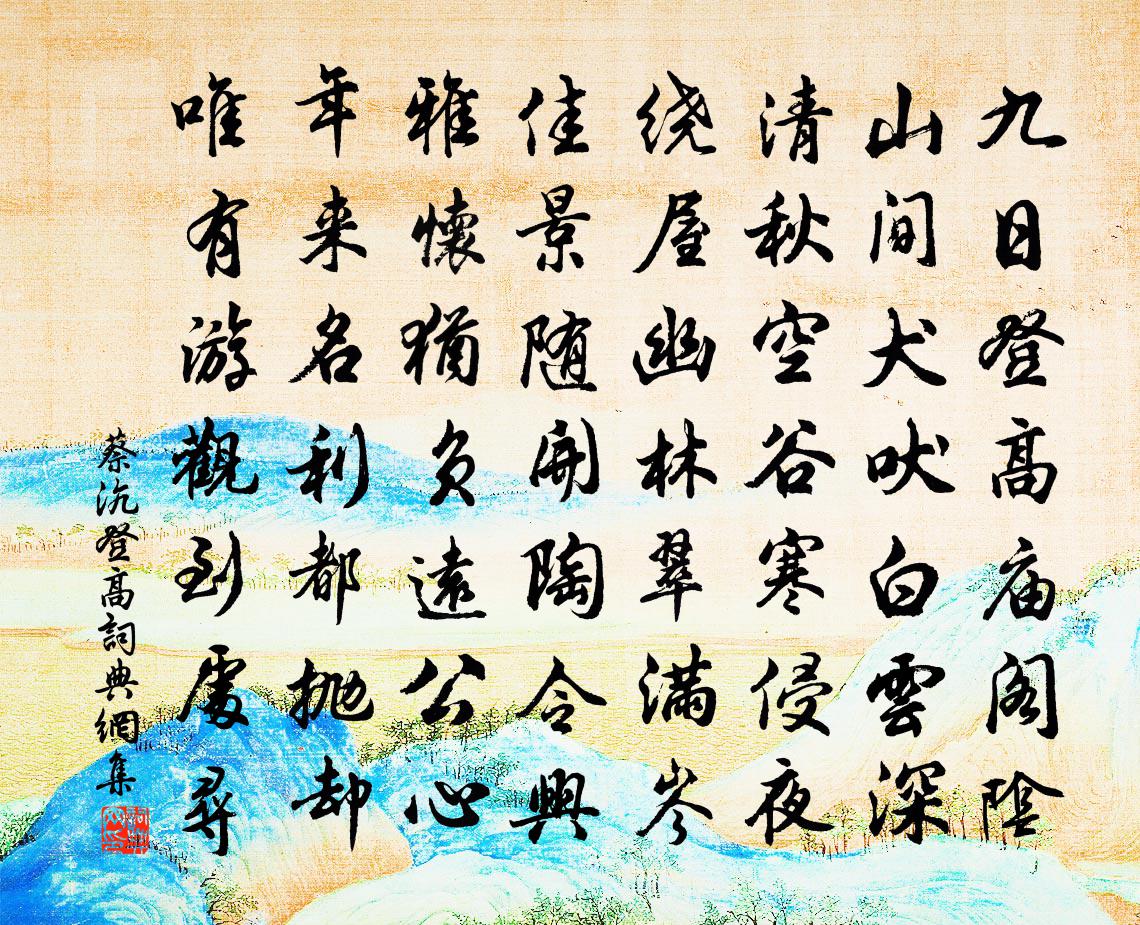 九日登高庙阁陰
山间犬吠白雲深
清秋空谷寒侵夜
绕屋幽林翠满岑
佳景随開陶令興
雅懷猶负遠公心
年来名利都抛却
唯有游觀到處尋
蔡沆登高詞典網集